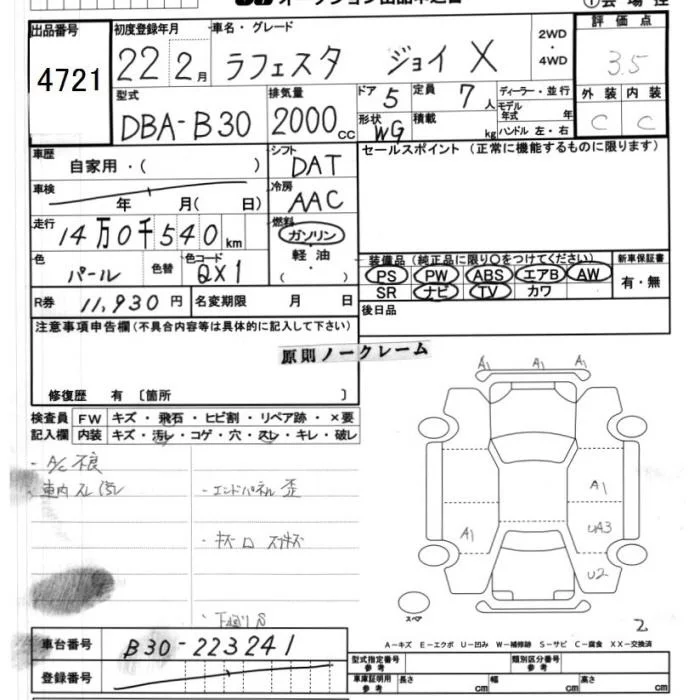 出品番号 初度登録年月 車名・グレード 2WD・4WD 評価点
4721 22 2月 ラフェスタ ジョイX 3.5
型式 排気量 ドア 定員 ディーラー・並行 外装 内装
DBA-B30 2000cc 5 7人 モデル年式 年 C C
形状 積載 ハンドル 左・右
WG kg
車歴 シフト セールスポイント(正常に機能するものに限ります)
自家用・( ) DAT
車検 冷房
年 月( 日) AAC
走行 燃料
14万0千540km ガソリン・軽油・( )
色 色替 色コード 装備品(純正品に限り○をつけてください) 新車保証書
パール QX1 PS PW ABS エアB AW 有・無
SR ナビ TV カワ
R券 11,930円 名変期限 月 日 後日品
注意事項申告欄(不具合内容等は具体的に記入して下さい)
原則ノークレーム
修復歴 有〔箇所 〕
A1 A1 A1
検査員 FW キズ・飛石・ヒビ割・リペア跡・×要
記入欄 内装 キズ・汚レ・コゲ・穴・スレ・キレ・破レ
・A/C不良
・車内スレ汚レ ・エンドパネル歪
A1
A1 UA3
U2
スペア
2
A-キズ E-エクボ U-凹み W-補修跡 S-サビ C-腐食 XX-交換済
車台番号 B30-223241
型式指定番号 参考 類別区分番号 参考
登録番号
車庫証明用 参考 長さ cm 幅 cm 高さ cm